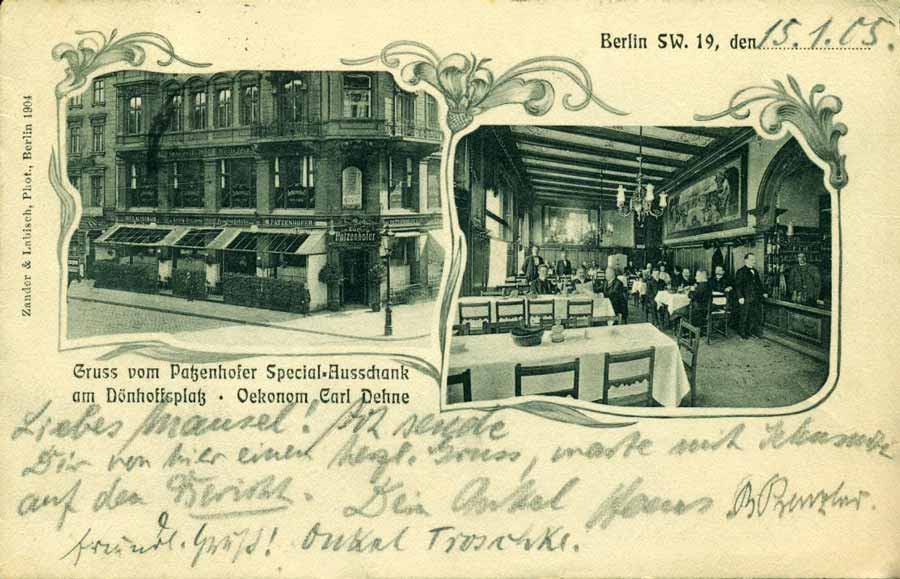 Berlin SW. 19, den 15.1.05.
Zander & Labisch, Phot., Berlin 1904
PATZENHOFER
Patzenhofer
Gruss vom Patzenhofer Special-Ausschank
am Dönhoffsplatz · Oekonom Carl Dehne
Liebes Mausel! sende
Dir von hier einen herzl. Gruss, warte mit Sehnsucht
auf den Bericht. Dein Onkel Hans
freundl. Gruß! Onkel Troschke.